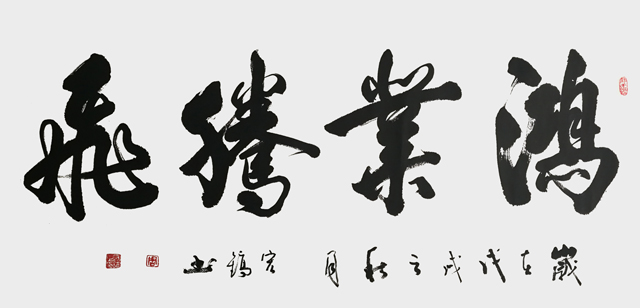 鸿業騰飛
歲在戊戌之秋月 宏鎬書